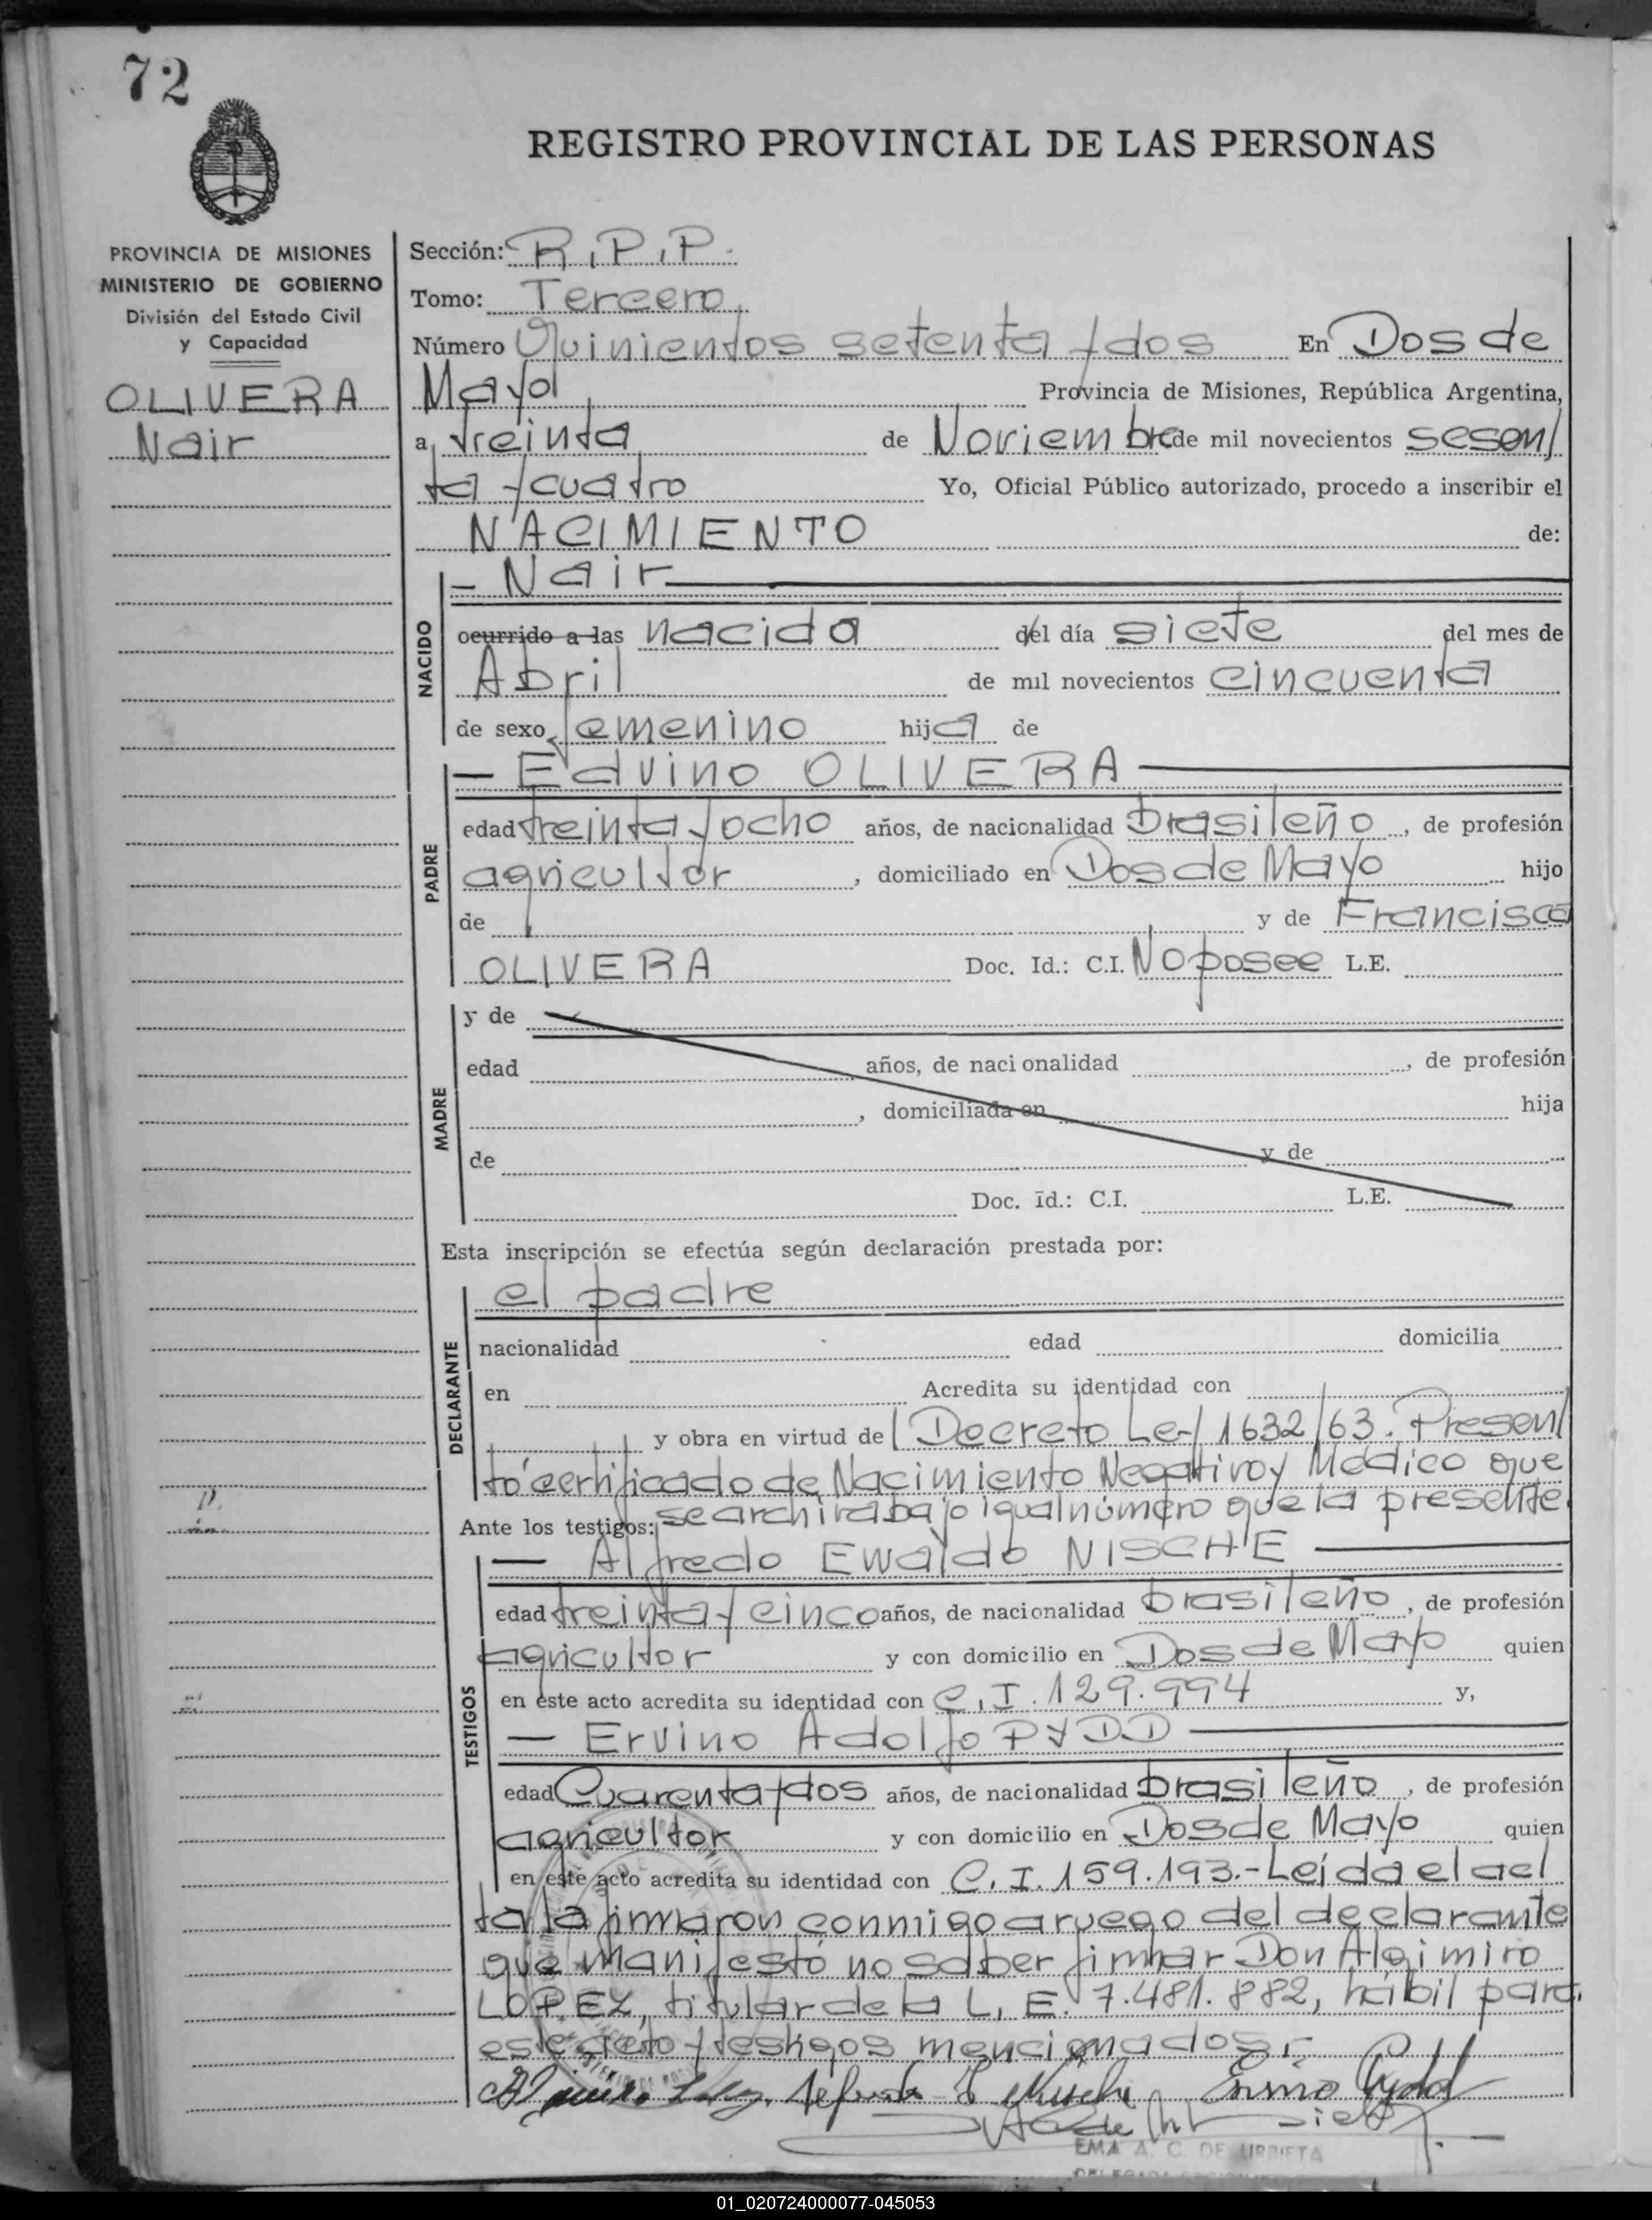 72
REGISTRO PROVINCIAL DE LAS PERSONAS
PROVINCIA DE MISIONES
MINISTERIO DE GOBIERNO
División del Estado Civil
y Capacidad
OLIVERA
Nair
Sección: R.P.P.
Tomo: Tercero
Número Quinientos setenta y dos En Dos de
Mayo Provincia de Misiones, República Argentina,
a treinta de Noviembre de mil novecientos sesen/
ta y cuatro Yo, Oficial Público autorizado, procedo a inscribir el
NACIMIENTO de:
— Nair —
NACIDO
ocurrido a las nacida del día siete del mes de
Abril de mil novecientos cincuenta
de sexo femenino hija de
— Edvino OLIVERA —
PADRE
edad treinta y ocho años, de nacionalidad brasileño, de profesión
agricultor, domiciliado en Dos de Mayo hijo
de y de Francisca
OLIVERA Doc. Id.: C.I. No posee L.E.
MADRE
y de
edad años, de nacionalidad , de profesión
, domiciliada en hija
de y de
Doc. Id.: C.I. L.E.
Esta inscripción se efectúa según declaración prestada por:
el padre
DECLARANTE
nacionalidad edad domicilia
en Acredita su identidad con
y obra en virtud de Decreto Ley 1632/63. Presen/
tó certificado de Nacimiento Negativo y Médico que
se archiva bajo igual número que la presente.
Ante los testigos:
— Alfredo Ewaldo NISCHE —
TESTIGOS
edad treinta y cinco años, de nacionalidad brasileño, de profesión
agricultor y con domicilio en Dos de Mayo quien
en este acto acredita su identidad con C.I. 129.994 y,
— Ervino Adolfo PYDD —
edad Cuarenta y dos años, de nacionalidad brasileño, de profesión
agricultor y con domicilio en Dos de Mayo quien
en este acto acredita su identidad con C.I. 159.193.- Leída el ac/
ta la firmaron conmigo a ruego del declarante
que manifestó no saber firmar Don Algimiro
LOPEZ, titular de la L.E. 7.481.882, hábil para
este acto y testigos mencionados.-
EMA A. C. DE URRIETA
01_020724000077-045053